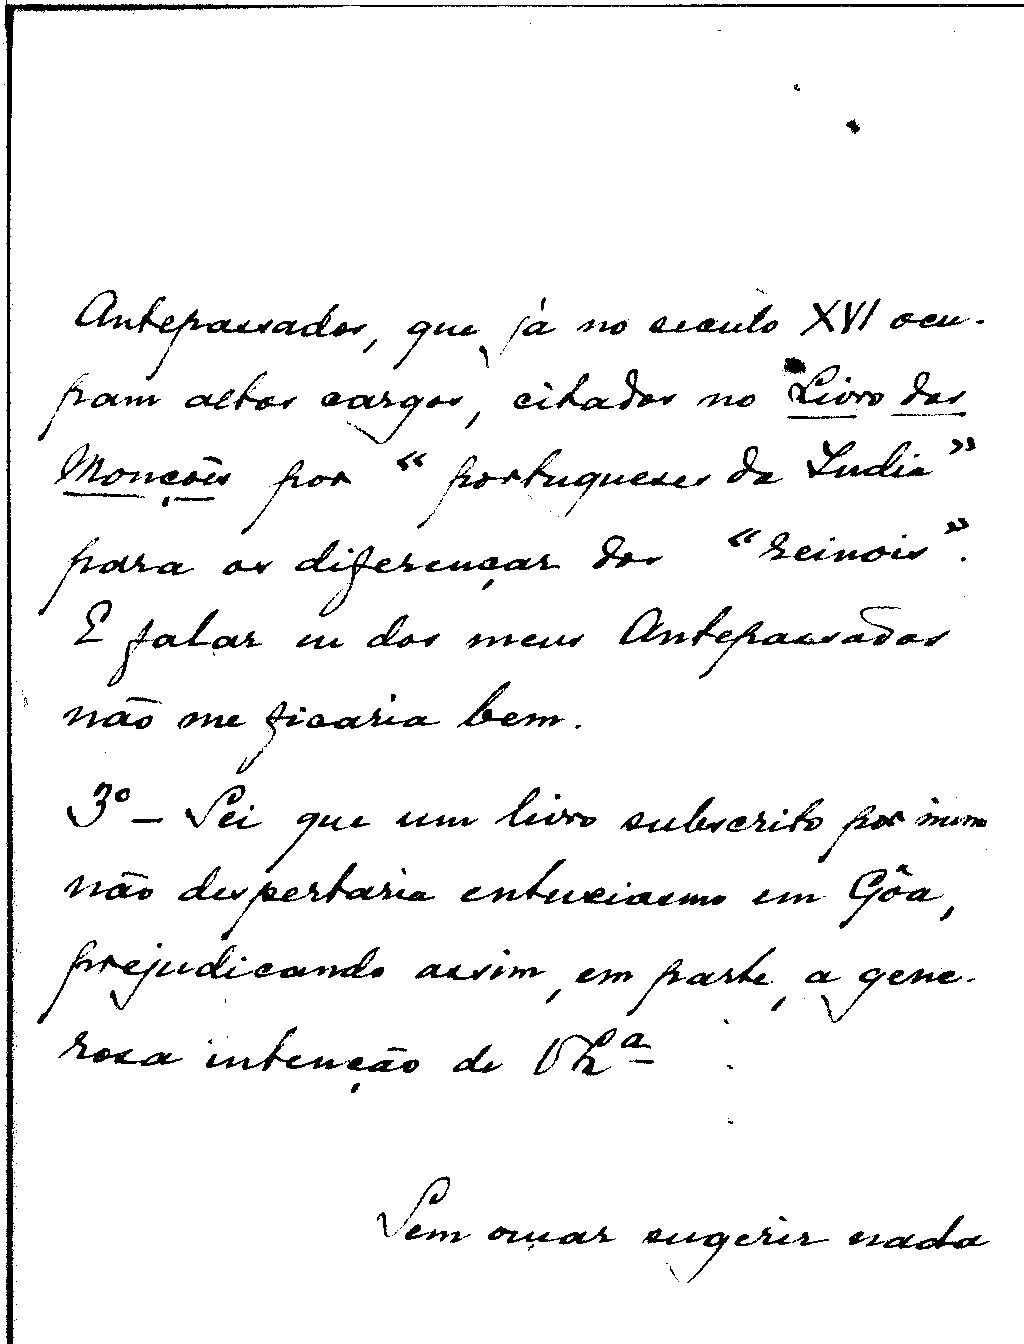 Antepassados, que já no seculo XVI ocu-
pam altos cargos, citados no Livro das
Monções por "portugueses da India"
para os diferençar dos "reinois".
E falar eu dos meus Antepassados
não me ficaria bem.
3º - Sei que um livro subscrito por mim
não despertaria entusiasmo em Gôa,
prejudicando assim, em parte, a gene-
rosa intenção de
Sem ousar sugerir nada